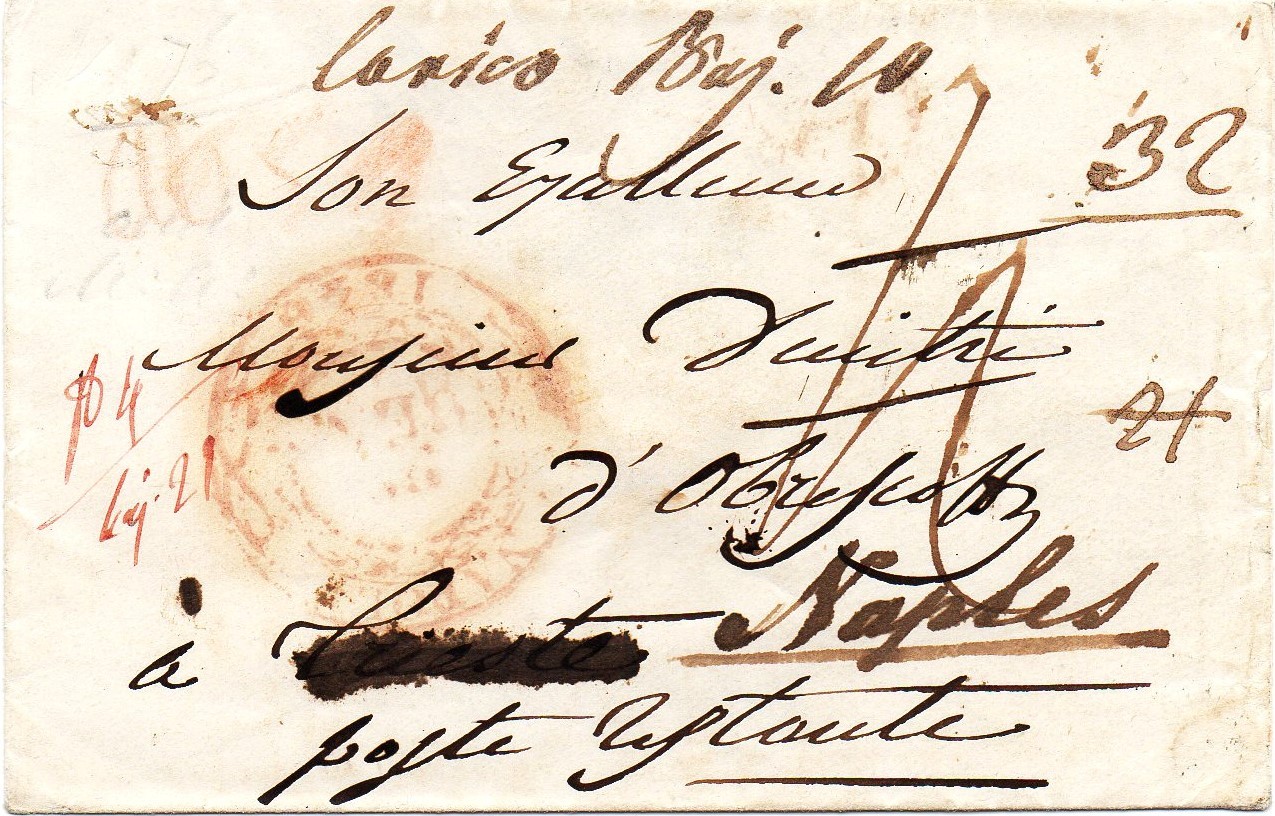 Carico Baj. 10
32
Son Exzellence
Monsieur Dmitri
21
d'Obreskoff
baj. 21
à Trieste Naples
poste restante